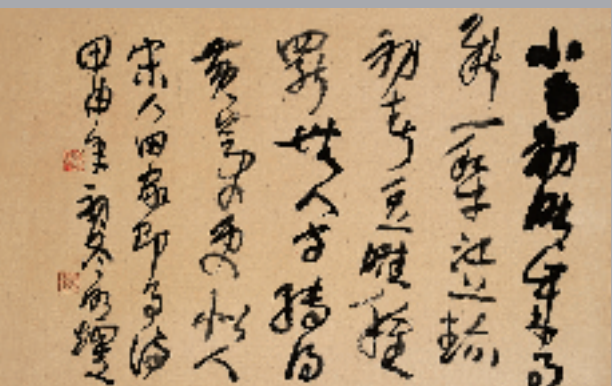 小雨初晴歲事
新一犁江上趁
初春豆畦種
罷無人守縛得
黃茅更似人
宋人田家即事詩
初冬